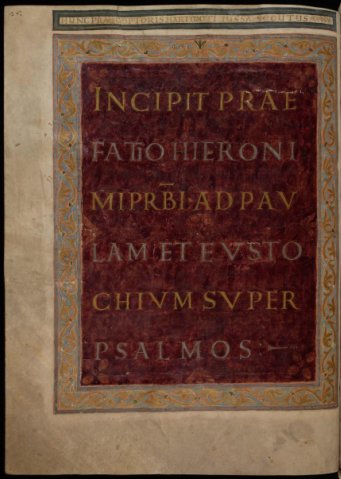 INCIPIT PRAE
FATIO HIERONI
MI PRBI·AD PAV
LAM ET EVSTO
CHIVM SVPER
PSALMOS